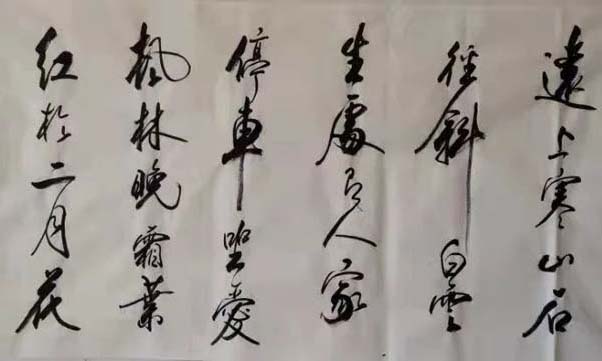 遠上寒山石
徑斜白雲
生處有人家
停車坐愛
楓林晚霜葉
紅於二月花